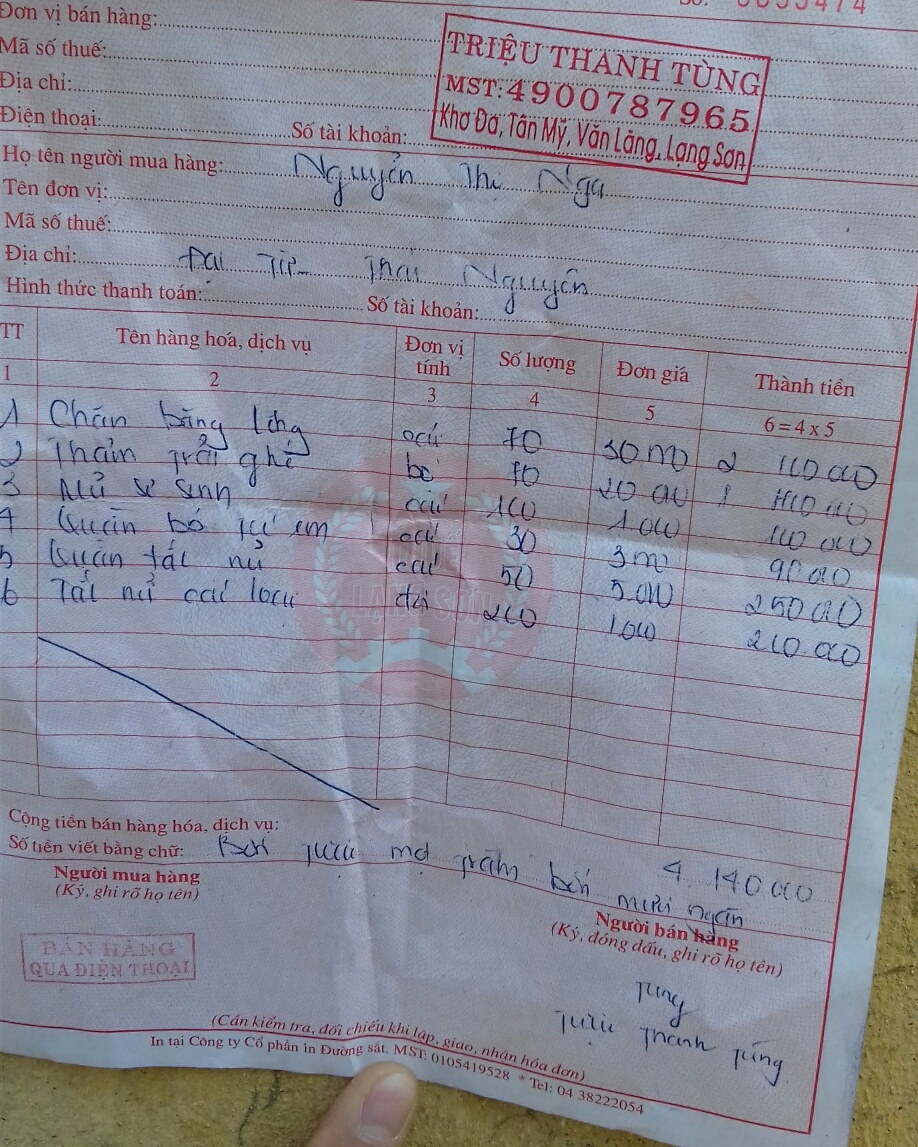 Đơn vị bán hàng:
Mã số thuế:
Địa chỉ:
Điện thoại: Số tài khoản:
TRIỆU THANH TÙNG
MST: 4900787965
Khơ Đa, Tân Mỹ, Văn Lãng, Lạng Sơn
Họ tên người mua hàng: Nguyễn Thị Nga
Tên đơn vị:
Mã số thuế:
Địa chỉ: Đại Từ Thái Nguyên
Hình thức thanh toán: Số tài khoản:
TT Tên hàng hoá, dịch vụ Đơn vị tính Số lượng Đơn giá Thành tiền
1 2 3 4 5 6 = 4 x 5
1 Chăn băng lông cái 70 30 000 2 100 000
2 Thảm trải ghế bộ 70 20 000 1 400 000
3 Mũ sơ sinh cái 100 1 000 100 000
4 Quần bó trẻ em cái 30 3 000 90 000
5 Quần tất nữ cái 50 5 000 250 000
6 Tất nữ các loại đôi 200 1 000 200 000
LẠNG SƠN
Cộng tiền bán hàng hóa, dịch vụ: 4 140 000
Số tiền viết bằng chữ: Bốn triệu một trăm bốn mươi ngàn
Người mua hàng
(Ký, ghi rõ họ tên)
Người bán hàng
(Ký, đóng dấu, ghi rõ họ tên)
BÁN HÀNG
QUA ĐIỆN THOẠI
Tùng
Triệu Thanh Tùng
(Cần kiểm tra, đối chiếu khi lập, giao, nhận hóa đơn)
In tại Công ty Cổ phần in Đường sắt. MST: 0105419528 * Tel: 04 38222054